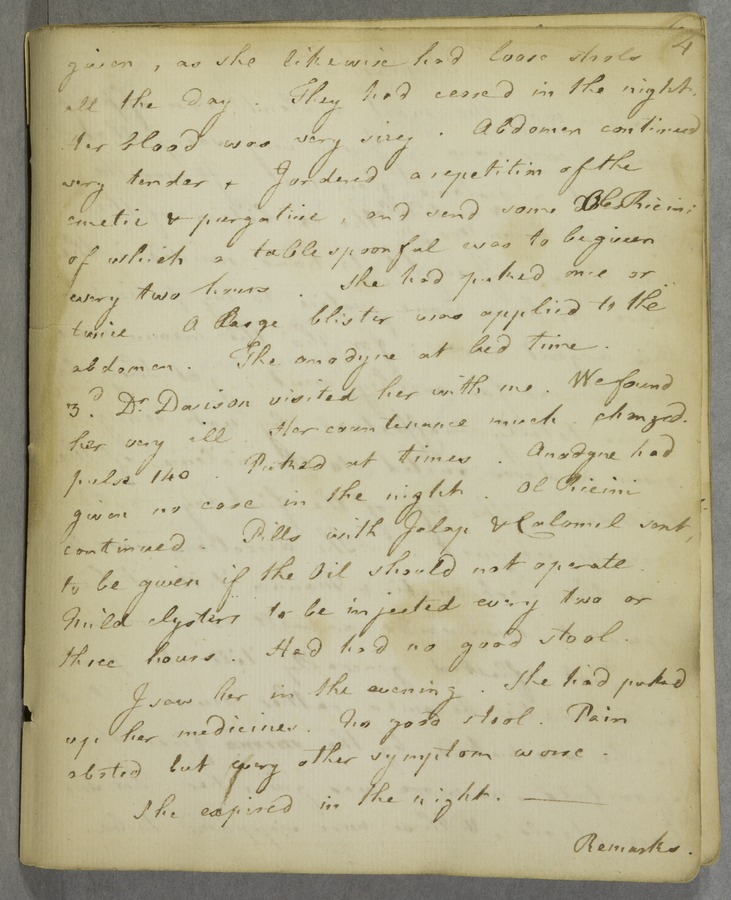 4
given, as she likewise had loose stools
all the day. They had ceased in the night.
Her blood was very sizey. Abdomen continued
very tender & I ordered a repetition of the
emetic & purgative, and send some Ol. Ricini
of which a tablespoonful was to be given
every two hours. She had puked once or
twice. A large blister was applied to the
abdomen. The anodyne at bed time.
3d. Dr. Davison visited her with me. We found
her very ill. Her countenance much changed.
pulse 140. Puked at times. Anodyne had
given no ease in the night. Ol Ricini
continued. Pills with Jalap & Calomel sent,
to be given if the Oil should not operate.
Mild clysters to be injected every two or
three hours. Had had no good stool.
I saw her in the evening. She had puked
up her medicines. No good stool. Pain
abated but every other symptom worse.
She expired in the night. —
Remarks.